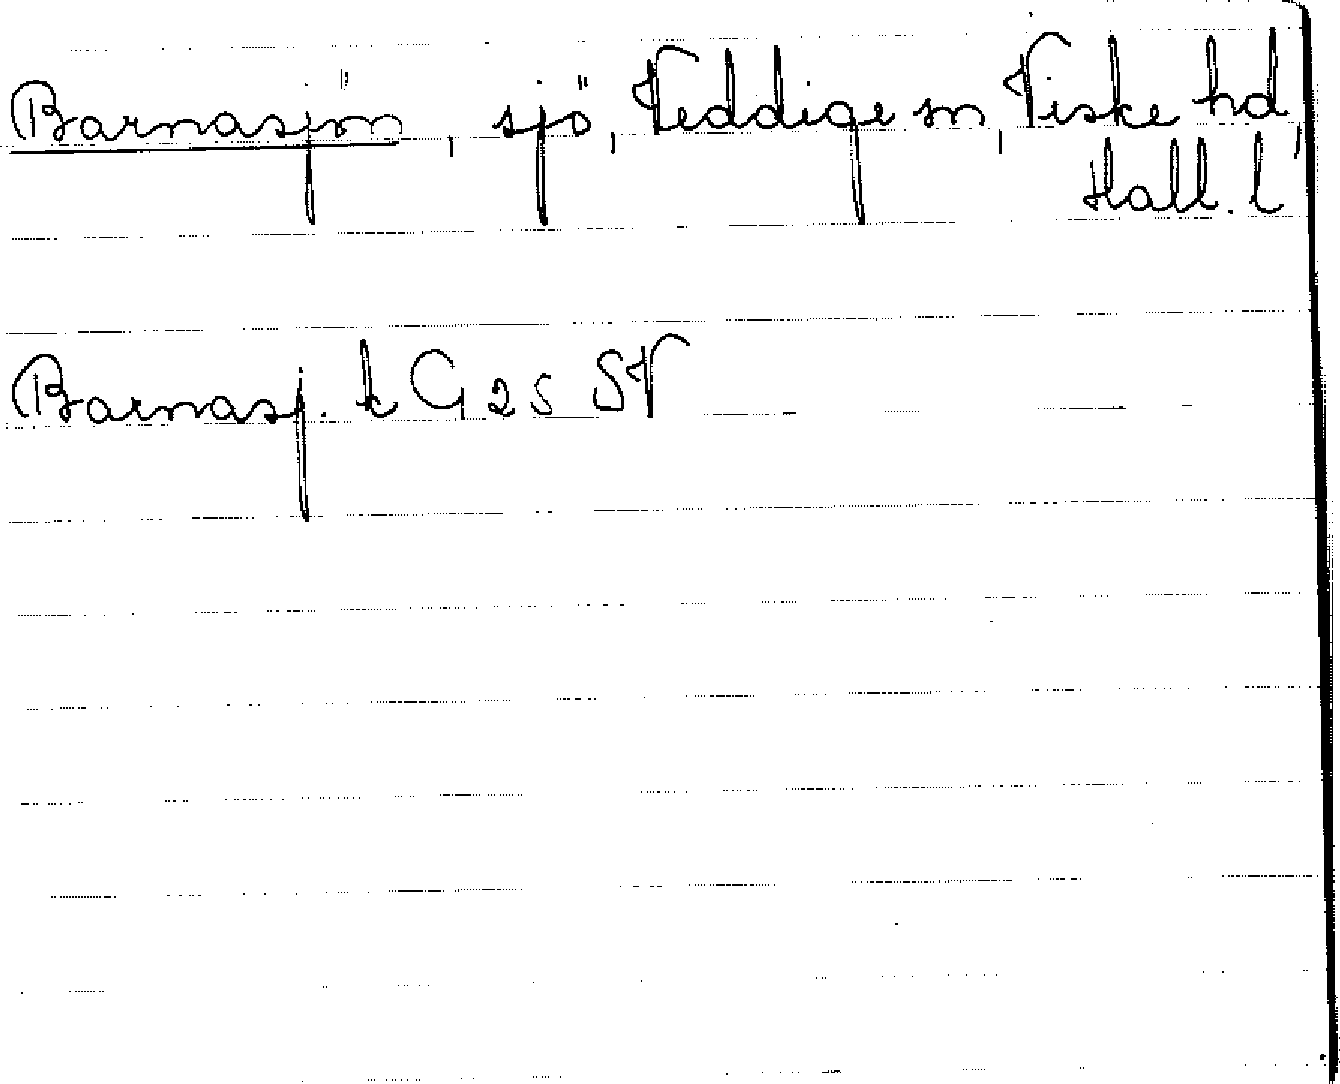 Barnasjön, sjö, Veddige sn, Viske hd,
Hall. l
Barnasj. k G 25 SV